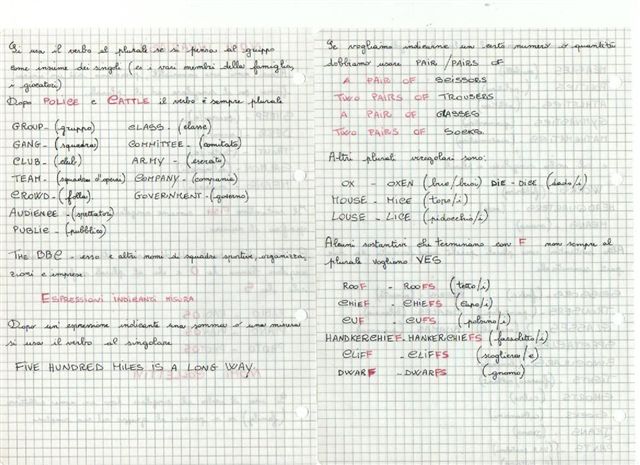 Si usa il verbo al plurale se si pensa al gruppo
come insieme dei singoli (es i vari membri della famiglia,
i giocatori)
Dopo POLICE e CATTLE il verbo è sempre plurale
GROUP - (gruppo) CLASS - (classe)
GANG - (squadra) COMMITTEE - (comitato)
CLUB - (club) ARMY - (esercito)
TEAM - (squadra d'operai) COMPANY - (compania)
CROWD - (folla) GOVERNMENT - (governo)
AUDIENCE - (spettatori)
PUBLIC - (pubblico)
The BBC - esso e altri nomi di squadre sportive, organizza_
zioni e imprese
ESPRESSIONI INDICANTI MISURA
Dopo un espressione indicante una somma o una misura
si usa il verbo al singolare
FIVE HUNDRED MILES IS A LONG WAY
Se vogliamo indicarne un certo numero o quantità
dobbiamo usare PAIR / PAIRS OF
A PAIR OF SCISSORS
TWO PAIRS OF TROUSERS
A PAIR OF GLASSES
TWO PAIRS OF SOCKS
Altri plurali irregolari sono:
OX - OXEN (bue/buoi) DIE - DICE (dado/i)
MOUSE - MICE (topo/i)
LOUSE - LICE (pidocchio/i)
Alcuni sostantivi che terminano con F non sempre al
plurale vogliono VES
ROOF - ROOFS (tetto/i)
CHIEF - CHIEFS (capo/i)
CUF - CUFS (polsino/i)
HANDKERCHIEF - HANKERCHIEFS (fazzoletto/i)
CLIFF - CLIFFS (scogliera/e)
DWARF - DWARFS (gnomo)